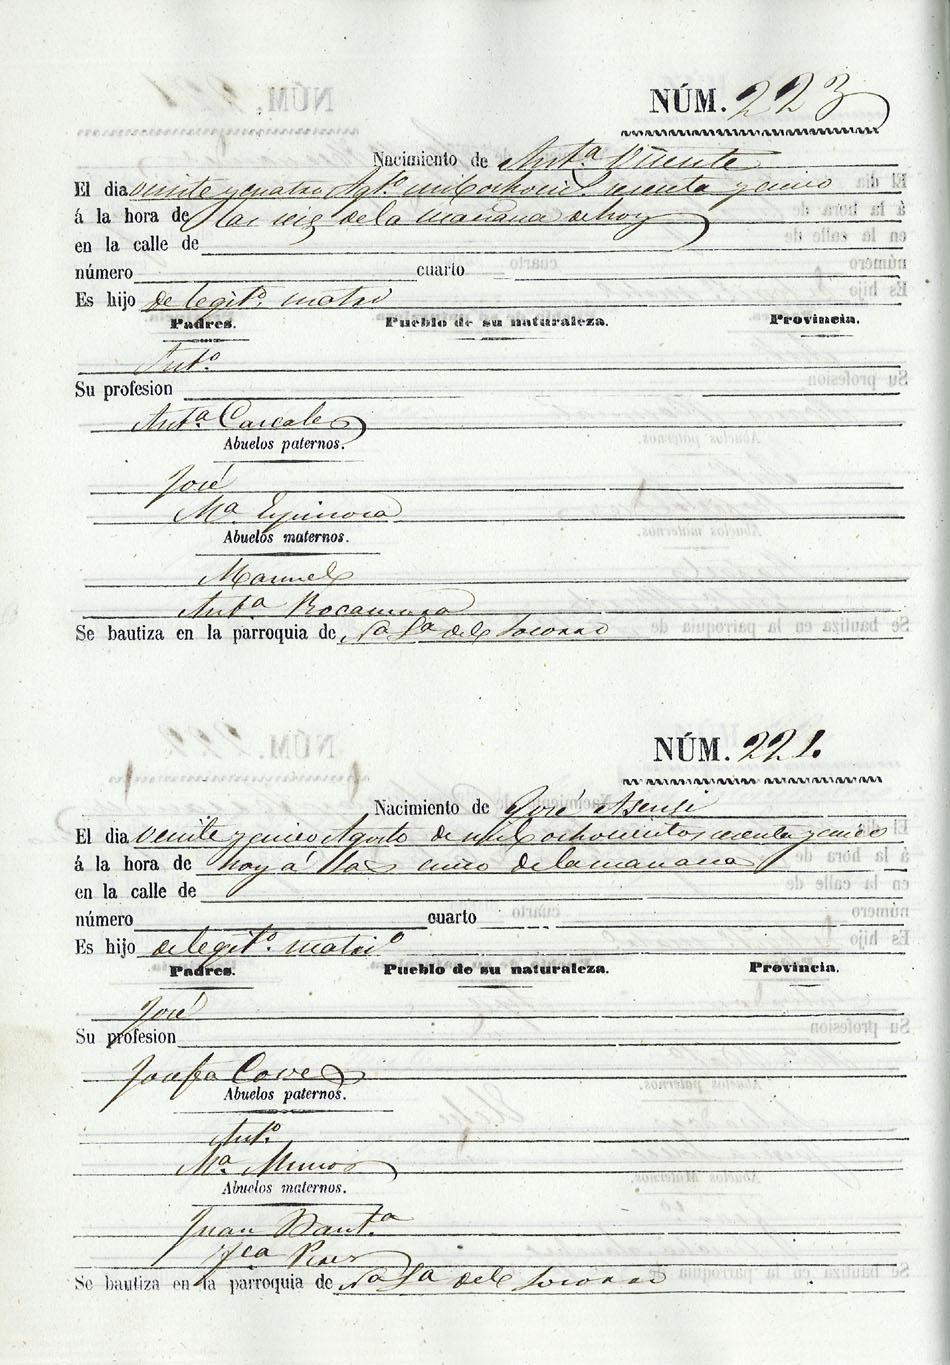 NÚM. 223
Nacimiento de Antª Vicente
El dia veinte y cuatro Agto mil ochoci.s sesenta y cinco
á la hora de las seis de la mañana de hoy
en la calle de
número cuarto
Es hijo de legitº. matri
Padres. Pueblo de su naturaleza. Provincia.
Antº
Su profesion
Antª Cascales
Abuelos paternos.
José
Mª Espinosa
Abuelos maternos.
Manuel
Antª Rocamora
Se bautiza en la parroquia de Nª Sª del Socorro
NÚM. 221.
Nacimiento de José Asensi
El dia veinte y cinco Agosto de mil ochocientos sesenta y cinco
á la hora de hoy á las cinco de la mañana
en la calle de
número cuarto
Es hijo de legitº. matriº
Padres. Pueblo de su naturaleza. Provincia.
José
Su profesion
Josefa Cove
Abuelos paternos.
Antº
Mª Munos
Abuelos maternos.
Juan Bautª
Fca
Se bautiza en la parroquia de Nª Sª del Socorro